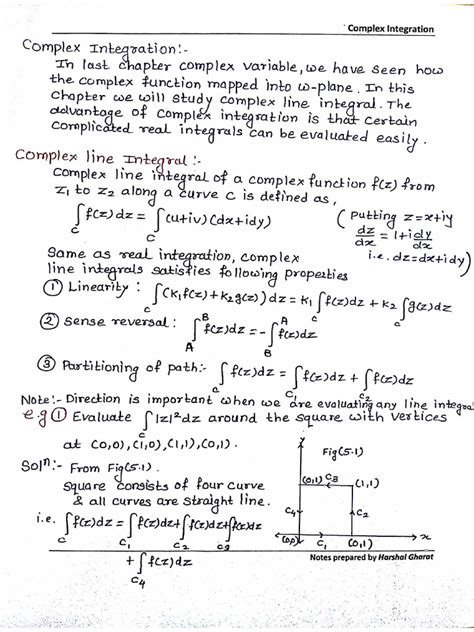 Complex Integration
Complex Integration:-
In last chapter complex variable, we have seen how
the complex function mapped into w-plane. In this
chapter we will study complex line integral. The
advantage of complex integration is that certain
complicated real integrals can be evaluated easily.
Complex line Integral:-
Complex line integral of a complex function f(z) from
z₁ to z₂ along a curve c is defined as,
∫_c f(z)dz = ∫_c (u+iv)(dx+idy) (Putting z=x+iy
dz/dx = 1+i dy/dx
i.e. dz=dx+idy)
Same as real integration, complex
line integrals satisfies following properties
① Linearity : ∫_c (k₁f(z)+k₂g(z))dz = k₁∫_c f(z)dz + k₂∫_c g(z)dz
② Sense reversal : ∫_A^B f(z)dz = -∫_B^A f(z)dz
③ Partitioning of path:- ∫_c f(z)dz = ∫_c₁ f(z)dz + ∫_c₂ f(z)dz
Note:- Direction is important when we are evaluating any line integral
e.g ① Evaluate ∫_c |z|²dz around the square with vertices
at (0,0),(1,0),(1,1),(0,1).
Solⁿ:- From Fig(5.1).
Square consists of four curve
& all curves are straight line.
i.e. ∫_c f(z)dz = ∫_c₁ f(z)dz+∫_c₂ f(z)dz+∫_c₃ f(z)dz
+ ∫_c₄ f(z)dz
y
Fig(5.1)
(0,1) C3 (1,1)
C4 C2
(0,0) C₁ (0,1) x
Notes prepared by Harshal Gharat